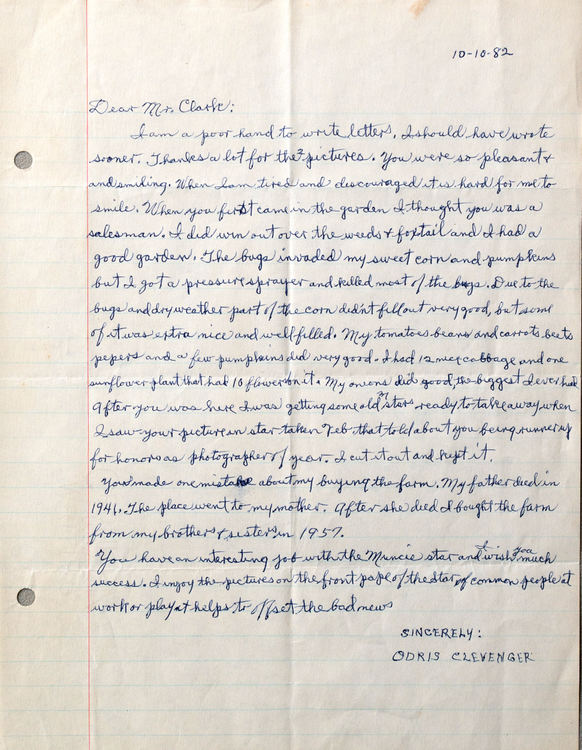 10-10-82
Dear Mr. Clark:
I am a poor hand to write letters, I should have wrote
sooner. Thanks a lot for the 2 pictures. You were so pleasant &
and smiling. When I am tired and discouraged it is hard for me to
smile. When you first came in the garden I thought you was a
salesman. I did win out over the weeds & foxtail and I had a
good garden. The bugs invaded my sweet corn and pumpkins
but I got a pressure sprayer and killed most of the bugs. Due to the
bugs and dry weather part of the corn didn't fill out very good, but some
of it was extra nice and well filled. My tomatoes beans and carrots beets
pepers and a few pumpkins did very good. I had 12 nice cabbage and one
sunflower plant that had 10 flowers on it. My onions did good the biggest I ever had
After you was here I was getting some old stars ready to take away when
I saw your picture in star taken Feb that told about you being runner up
for honors as photographer of year. I cut it out and kept it.
You made one mistake about my buying the farm. My father died in
1941. The place went to my mother. After she died I bought the farm
from my brothers & sisters in 1957.
You have an interesting job with the Muncie star and I wish you much
success. I injoy the pictures on the front page of the star of common people at
work or play it helps to offset the bad news
SINCERELY:
ODRIS CLEVENGER